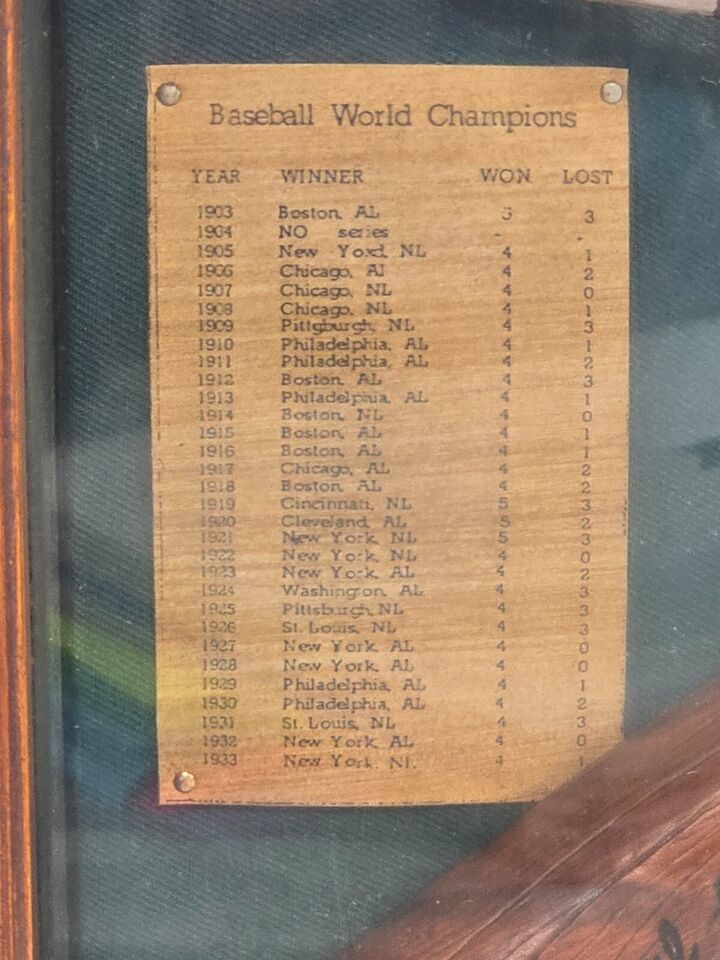 Baseball World Champions
YEAR WINNER WON LOST
1903 Boston, AL 5 3
1904 NO series - -
1905 New Yord, NL 4 1
1906 Chicago, Al 4 2
1907 Chicago, NL 4 0
1908 Chicago, NL 4 1
1909 Pittgburgh, NL 4 3
1910 Philadelphia, AL 4 1
1911 Philadelphia, AL 4 2
1912 Boston, AL 4 3
1913 Philadelphia, AL 4 1
1914 Boston, NL 4 0
1915 Boston, AL 4 1
1916 Boston, AL 4 1
1917 Chicago, AL 4 2
1918 Boston, AL 4 2
1919 Cincinnati, NL 5 3
1920 Cleveland, AL 5 2
1921 New York, NL 5 3
1922 New York, NL 4 0
1923 New York, AL 4 2
1924 Washington, AL 4 3
1925 Pittsburgh, NL 4 3
1926 St. Louis, NL 4 3
1927 New York, AL 4 0
1928 New York, AL 4 0
1929 Philadelphia, AL 4 1
1930 Philadelphia, AL 4 2
1931 St. Louis, NL 4 3
1932 New York, AL 4 0
1933 New York, NL 4 1